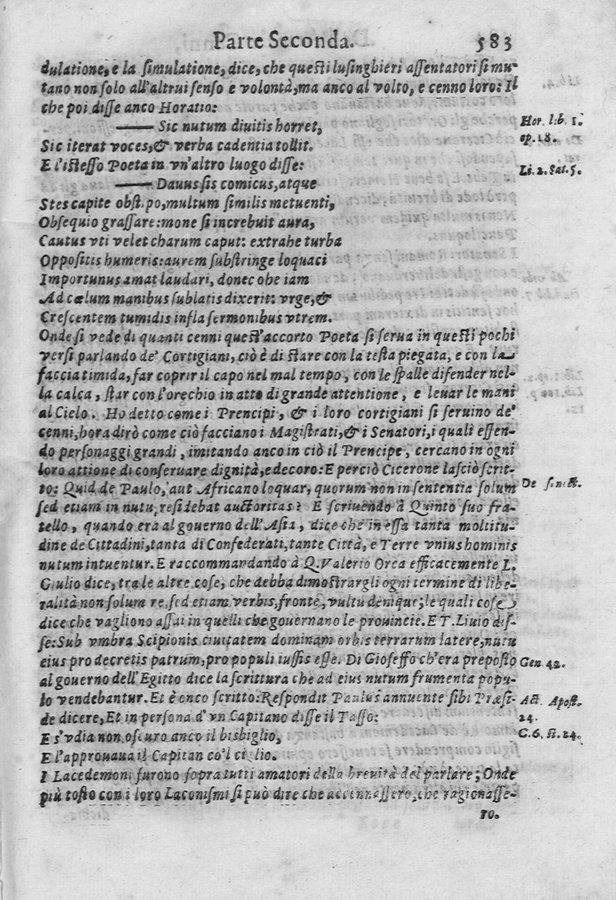 Parte Seconda. 583
dulatione, e la simulatione, dice, che questi lusinghieri assentatori si mu-
tano non solo all'altrui senso e volontà, ma anco al volto, e cenno loro: Il
che poi disse anco Horatio:
——— Sic nutum diuitis horret, Hor. lib. 1.
Sic iterat voces, & verba cadentia tollit. ep. 18.
E l'istesso Poeta in vn'altro luogo disse: Li. 2. Sat. 5.
——— Dauus sis comicus, atque
Stes capite obstipo, multum similis metuenti,
Obsequio grassare: mone si increbuit aura,
Cautus vti velet charum caput: extrahe turba
Oppositis humeris: aurem substringe loquaci
Importunus amat laudari, donec ohe iam
Ad cœlum manibus sublatis dixerit: vrge, &
Crescentem tumidis infla sermonibus vtrem.
Onde si vede di quanti cenni quest'accorto Poeta si serua in questi pochi
versi parlando de' Cortigiani, ciò è di stare con la testa piegata, e con la
faccia timida, far coprir il capo nel mal tempo, con le spalle difender nel-
la calca, star con l'orechio in atto di grande attentione, e leuar le mani
al Cielo. Ho detto come i Prencipi, & i loro cortigiani si seruino de'
cenni, hora dirò come ciò facciano i Magistrati, & i Senatori, i quali essen-
do personaggi grandi, imitando anco in ciò il Prencipe, cercano in ogni
loro attione di conseruare dignità, e decoro: E perciò Cicerone lasciò scrit-
to: Quid de Paulo, aut Africano loquar, quorum non in sententia solum De senect.
sed etiam in nutu residebat auctoritas? E scriuendo à Quinto suo fra-
tello, quando era al gouerno dell'Asia, dice che in essa tanta moltitu-
dine de Cittadini, tanta di Confederati, tante Città, e Terre vnius hominis
nutum intuentur. E raccommandando à Q. Valerio Orca efficacemente L.
Giulio dice, tra le altre cose, che debba dimostrargli ogni termine di libe-
ralità non solum re, sed etiam verbis, fronte, vultu denique; le quali cose
dice che vagliono assai in quelli che gouernano le prouincie. E T. Liuio dis-
se: Sub vmbra Scipionis ciuitatem dominam orbis terrarum latere, nutu
eius pro decretis patrum, pro populi iussis esse. Di Gioseffo ch'era preposto Gen. 42.
al gouerno dell'Egitto dice la scrittura che ad eius nutum frumenta popu-
lo vendebantur. Et è onco scritto: Respondit Paulus annuente sibi Præsi- Act. Apost.
de dicere, Et in persona d'vn Capitano disse il Tasso: 24.
E s'vdia non oscuro anco il bisbiglio, C. 6. st. 24.
E l'approuaua il Capitan co'l ciglio.
I Lacedemoni furono sopra tutti amatori della breuità del parlare; Onde
più tosto con i loro Laconismi si può dire che accennassero, che ragionasse-
ro.